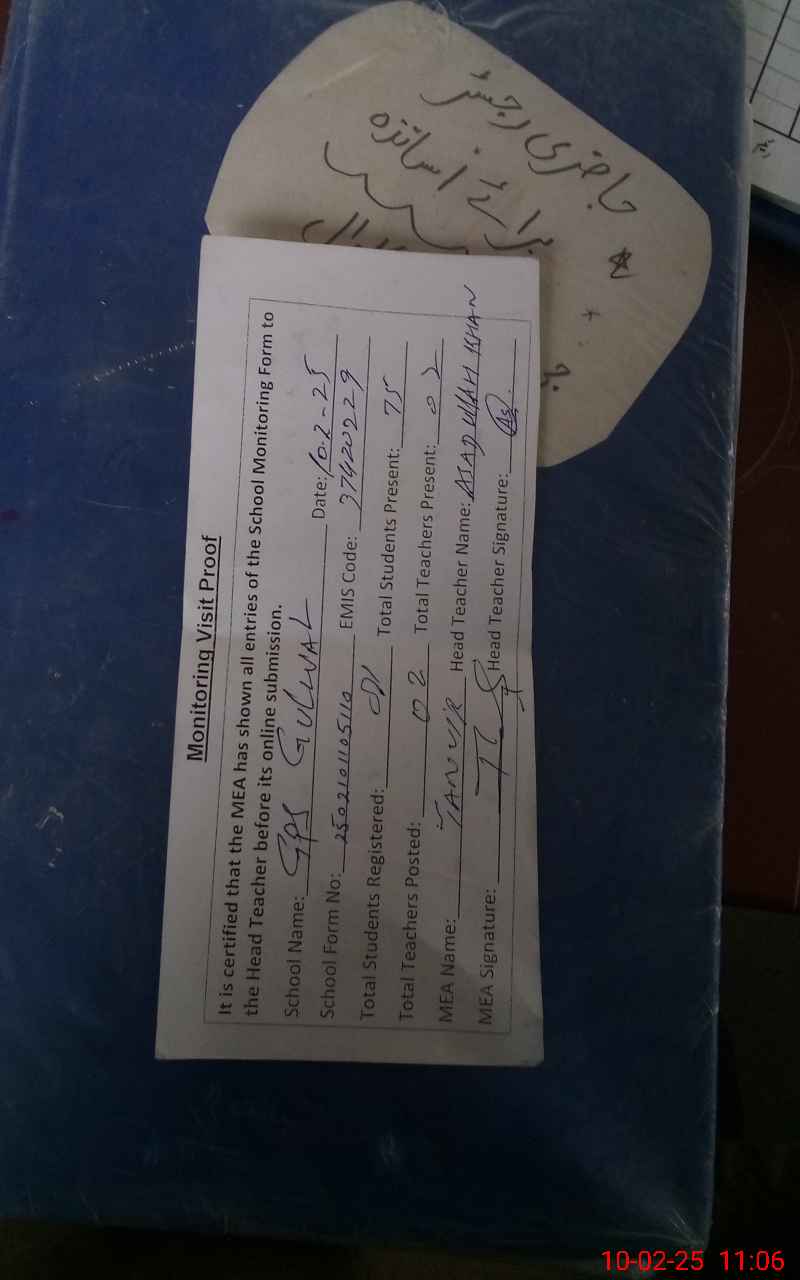 حاضری رجسٹر
برائے اساتذہ
Monitoring Visit Proof
It is certified that the MEA has shown all entries of the School Monitoring Form to
the Head Teacher before its online submission.
School Name: GPS GULWAL Date: 10-2-25
School Form No: 2502101105110 EMIS Code: 37420229
Total Students Registered: 81 Total Students Present: 75
Total Teachers Posted: 02 Total Teachers Present: 02
MEA Name: TANVIR Head Teacher Name: ASAD ULLAH KHAN
MEA Signature: Head Teacher Signature:
10-02-25 11:06